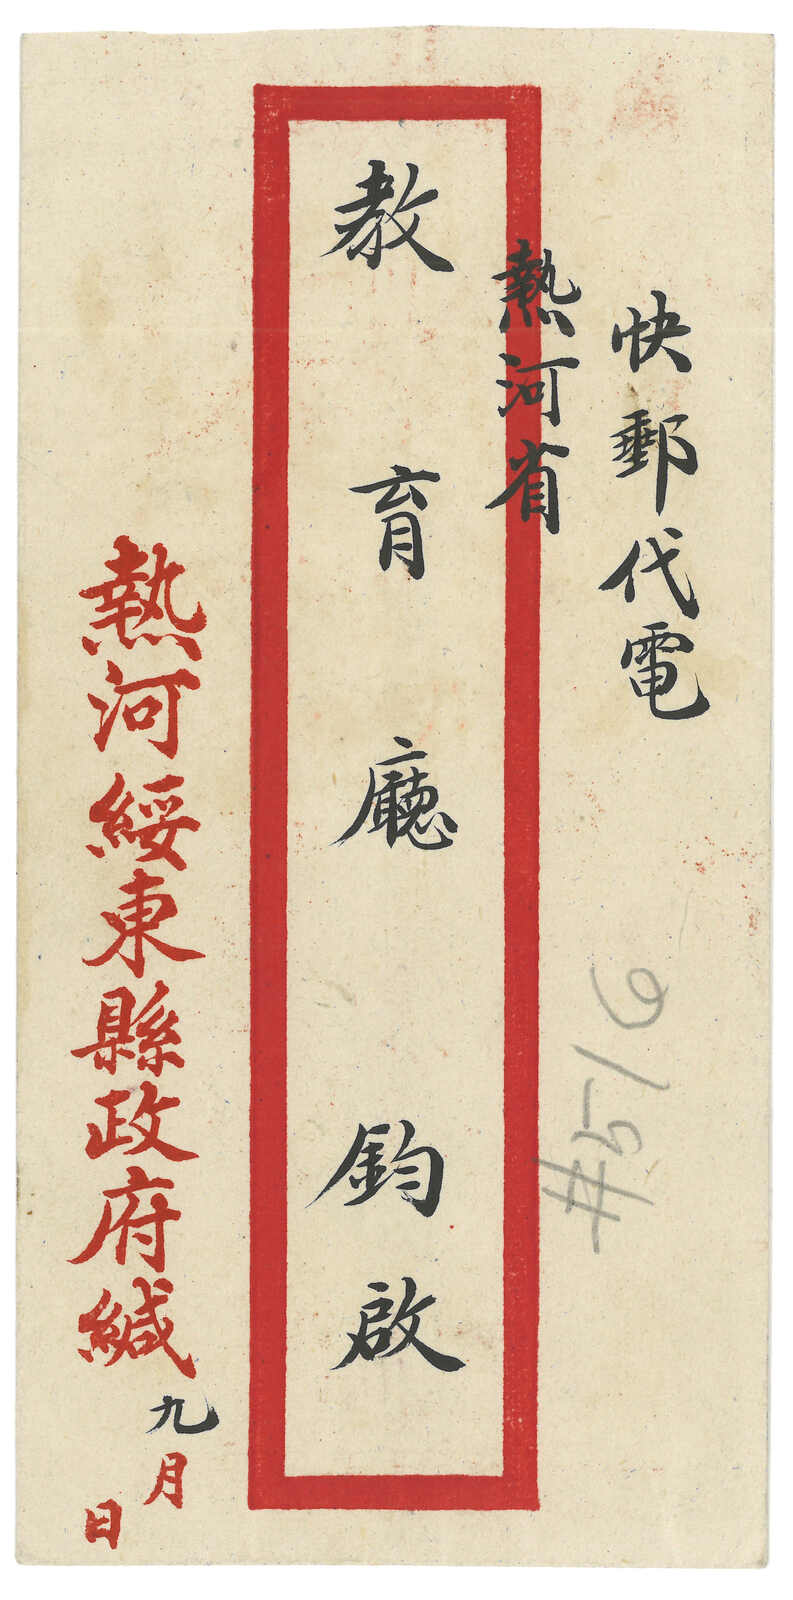 快郵代電
熱河省
教育廳 鈞啟
熱河綏東縣政府緘
九月 日